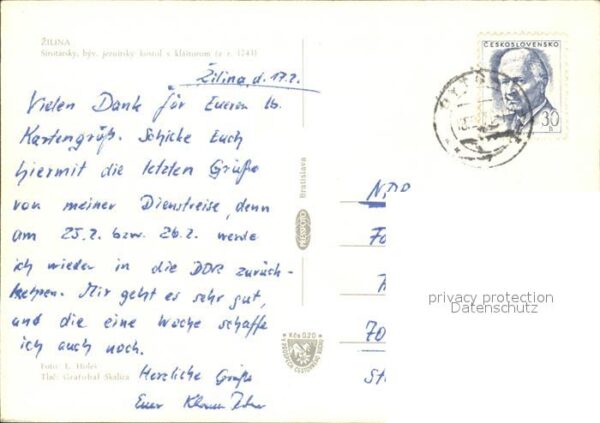 ŽILINA
Sirotársky, býv. jezuitský kostol s kláštorom (z r. 1743)
Žilina, d. 17.2.
Vielen Dank für Eueren lb.
Kartengruß. Schicke Euch
hiermit die letzten Grüße
von meiner Dienstreise, denn
am 25.2. bzw. 26.2. werde
ich wieder in die DDR zurück-
kehren. Mir geht es sehr gut,
und die eine Woche schaffe
ich auch noch.
Herzliche Grüße
Euer Klaus
Foto: L. Holeš
Tlač: Grafobal Skalica
PRESSFOTO
Bratislava
Kčs 0,20
ČESKOSLOVENSKO
30
h
privacy protection
Datenschutz